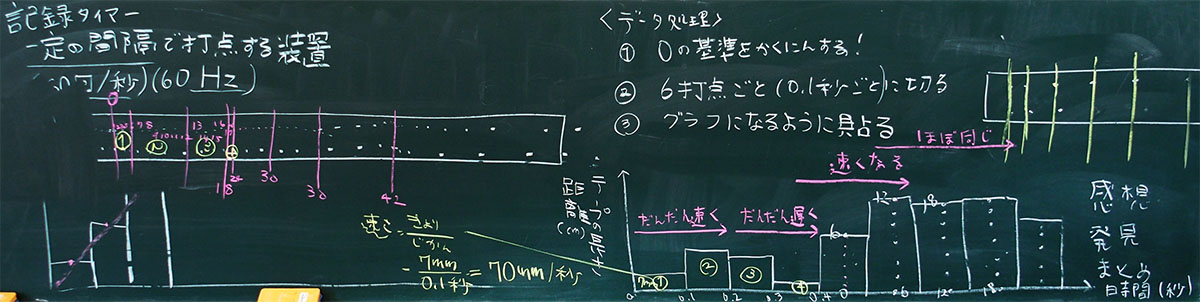 記録タイマー
一定の間隔で打点する装置
回/秒)(60Hz)
0
① 7 8 13
② ③ ④
18 24 30 30 42
速さ=きょり/じかん
=7mm/0.1秒=70mm/秒
<データ処理>
① 0の基準をかくにんする!
② 6打点ごと(0.1秒ごと)に切る
③ グラフになるように貼る
ほぼ同じ
速くなる
だんだん速く だんだん遅く
テープの長さ
距離(cm)
7mm ① ② ③ ④
6 12 18
0 0.1 0.2 0.3 0.4 0 6 12 18
感想
発見
まとめ
時間(秒)